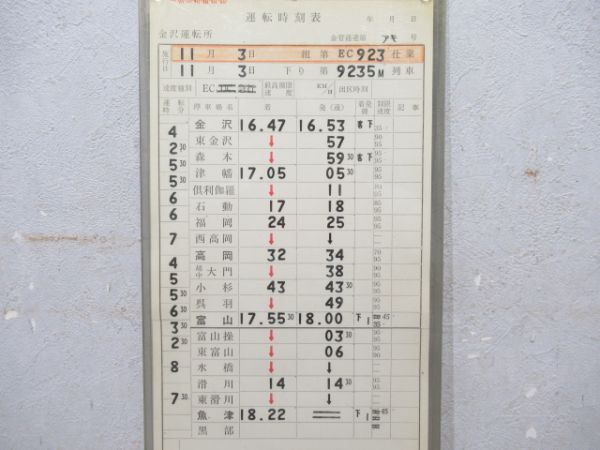 運転時刻表
年 月 日
金沢運転所
金管達運第 アモ 号
施行日 11 月 3 日 組 第 EC923 仕業
11 月 3 日 下り 第 9235M 列車
速度種別 EC 最高制限速度 KM/H 出区時刻
運転時分 停車場名 着 発(通) 着発線 制限速度 記事
金沢 16.47 16.53 宮下
4
東金沢 ↓ 57
2 30
森本 ↓ 59 30 宮下
5 30
津幡 17.05 05 30
5 30
倶利伽羅 ↓ 11
6
石動 17 18
6
福岡 24 25
西高岡 ↓ ↓
7
高岡 32 34
4
越中大門 ↓ 38
5
小杉 43 43 30
5 30
呉羽 ↓ 49
6 30
富山 17.55 30 18.00 下1
3 30
富山操 ↓ 03 30
2 30
東富山 ↓ 06
水橋 ↓ ↓
8
滑川 14 14 30
東滑川 ↓ ↓
7 30
魚津 18.22 下1
黒部